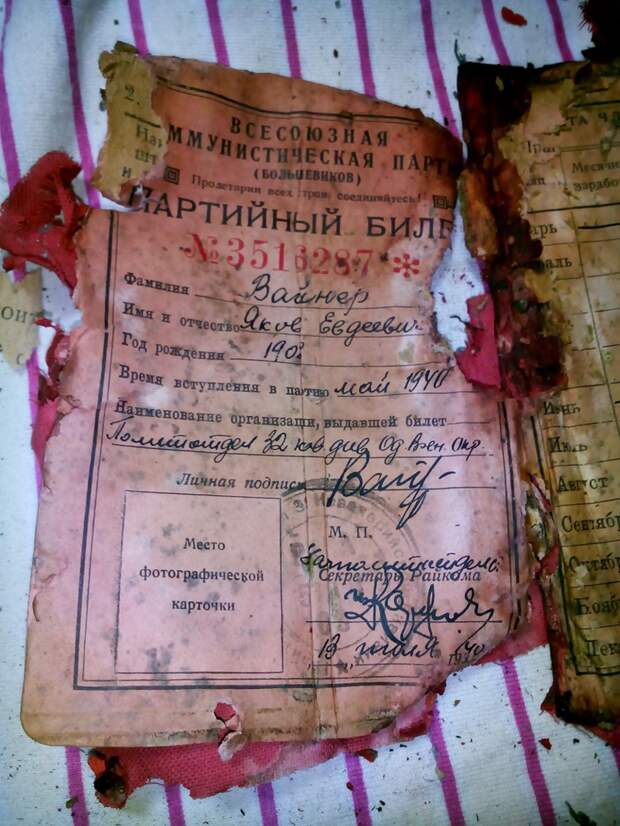 2.
ВСЕСОЮЗНАЯ
ММУНИСТИЧЕСКАЯ ПАРТ
(БОЛЬШЕВИКОВ)
Пролетарии всех стран, соединяйтесь!
ПАРТИЙНЫЙ БИЛЕ
№3516287 *
Фамилия Вайнер
Имя и отчество Яков Евдеевич
Год рождения 190
Время вступления в партию май 1940
Наименование организации, выдавшей билет
Политотдел 32 кав. див. Од. Воен. Окр.
Личная подпись
М. П.
Место
фотографической
карточки
Секретарь Райкома
13 июля 1940
Месячн
зарабо
арь
Июль
Август
Сентябр
Октябр
Дек